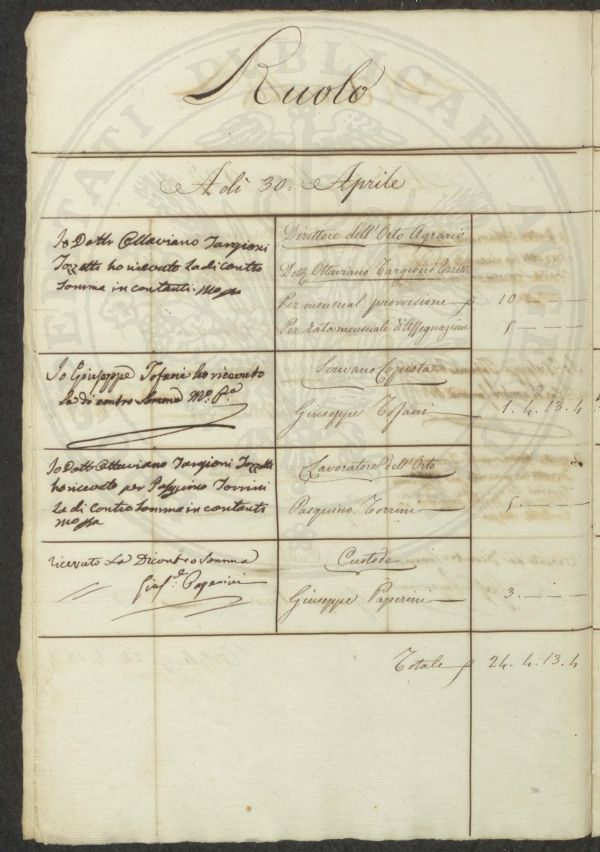 Ruolo
A dì 30= Aprile
Io Dott. Ottaviano Targioni
Tozzetti ho ricevuto la di contro
somma in contanti. Mopa
Direttore dell'Orto Agrario
Dott. Ottaviano Targioni Tozzetti
Per mensual provvisione 10. — —
Per rata mensuale di Assegnazione 5 — — —
Io Giuseppe Tofani ho ricevuto
la di contro somma Mo. Pa.
Scrivano Copista
Giuseppe Tofani 1. 4. 13. 4
Io Dott. Ottaviano Targioni Tozzetti
ho ricevuto per Pasquino Torrini
la di contro somma in contanti
mopa
Lavoratore dell'Orto
Pasquino Torrini 5. — —
ricevuto La Dicontro Somma
Paperini
Custode
Giuseppe Paperini 3. — —
Totale 24. 4. 13. 4